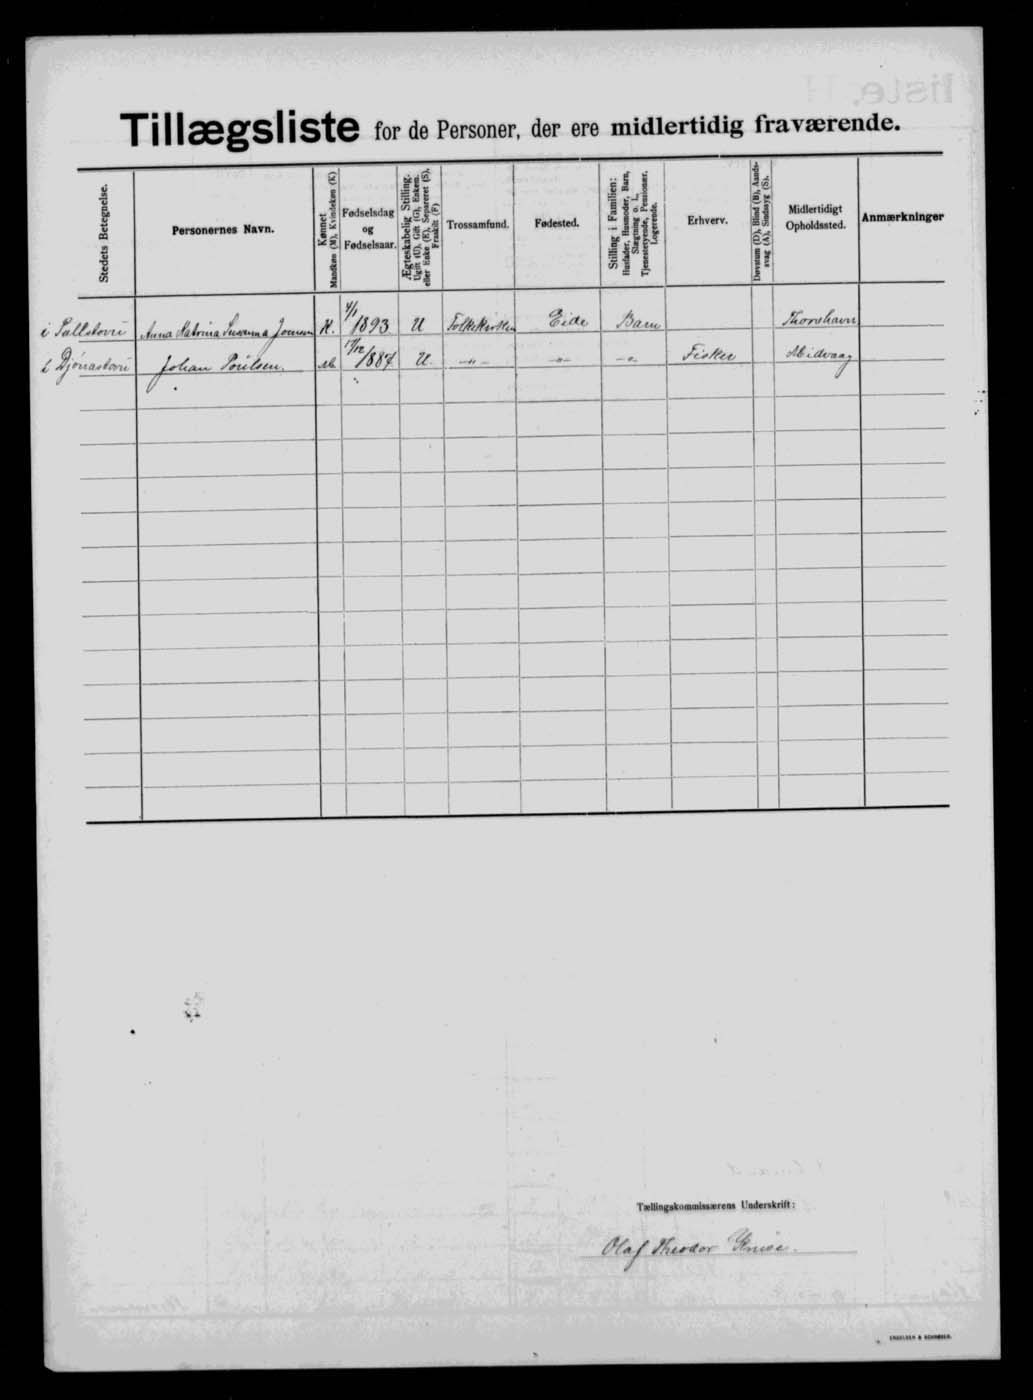 Tillægsliste for de Personer, der ere midlertidig fraværende.
Stedets Betegnelse.
Personernes Navn.
Kønnet
Mandkøn (M), Kvindekøn (K)
Fødselsdag
og
Fødselsaar.
Ægteskabelig Stilling.
Ugift (U), Gift (G), Enkem.
eller Enke (E), Separeret (S),
Fraskilt (F)
Trossamfund.
Fødested.
Stilling i Familien:
Husfader, Husmoder, Barn,
Slægtning o. l.,
Tjenestetyende, Pensionær,
Logerende.
Erhverv.
Døvstum (D), Blind (B), Aands-
svag (A), Sindssyg (S).
Midlertidigt
Opholdssted.
Anmærkninger
i Pallstovu Anna Katrina Susanna Joensen K. 4/1 1893 U Folkekirken Eide Barn Thorshavn
Johan Poulsen. M. /1884 U. -"- -"- -"- Fisker Midvaag
Tællingskommissærens Underskrift:
Olaf Theodor Kruse.
ENGELSEN & SCHRØDER.